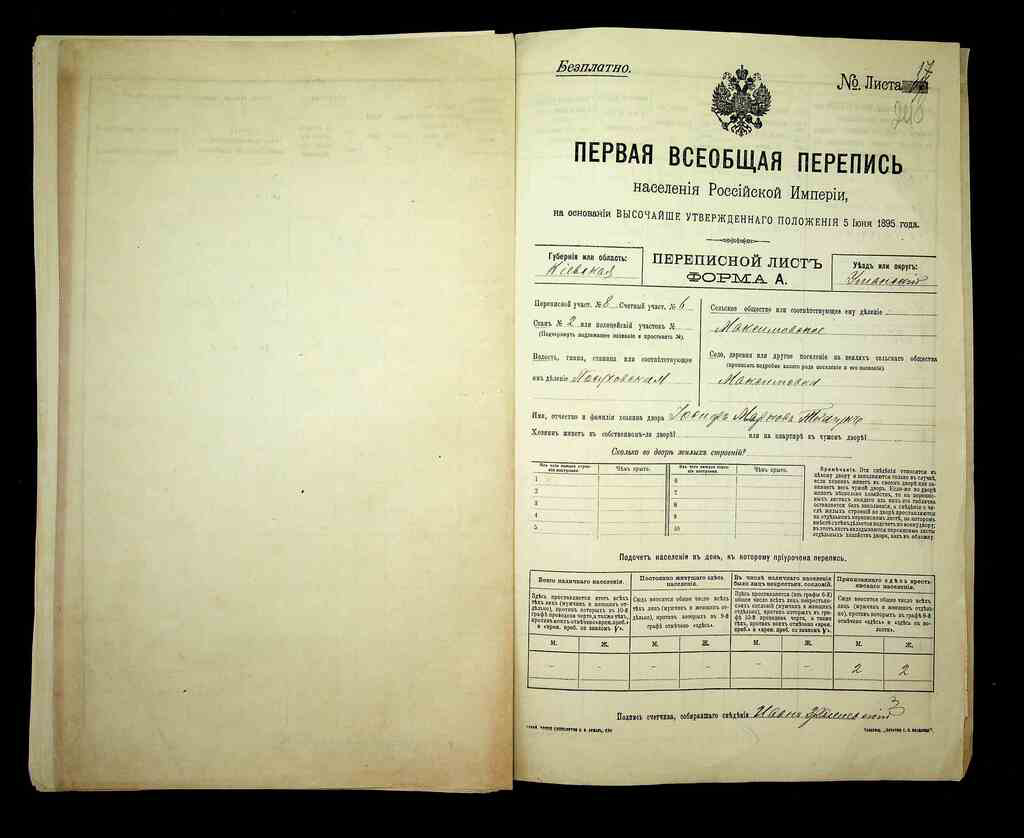 Безплатно.
№ Листа 17
240
ПЕРВАЯ ВСЕОБЩАЯ ПЕРЕПИСЬ
населенія Россійской Имперіи,
на основаніи ВЫСОЧАЙШЕ УТВЕРЖДЕННАГО ПОЛОЖЕНІЯ 5 Іюня 1895 года.
Губернія или область:
Кіевская
ПЕРЕПИСНОЙ ЛИСТЪ
ФОРМА А.
Уѣздъ или округъ:
Уманскій
Переписной участ. № 8 Счетный участ. № 6
Станъ № 2 или полицейскій участокъ №
(Подчеркнуть надлежащее названіе и проставить №).
Волость, гмина, станица или соотвѣтствующее
имъ дѣленіе
Сельское общество или соотвѣтствующее ему дѣленіе
Максимовское
Село, деревня или другое поселеніе на земляхъ сельскаго общества
(прописать подробно какого рода поселеніе и его названіе)
Максимовка
Имя, отчество и фамилія хозяина двора Іосифъ Марковъ
Хозяинъ живетъ въ собственномъ-ли дворѣ? или на квартирѣ въ чужомъ дворѣ?
Сколько во дворѣ жилыхъ строеній?
Изъ чего каждое строеніе построено
Чѣмъ крыто.
Изъ чего каждое строеніе построено
Чѣмъ крыто.
1 6
2 7
3 8
4 9
5 10
Подсчетъ населенія въ день, къ которому пріурочена перепись.
Всего наличнаго населенія.
Постоянно живущаго здѣсь населенія.
Въ числѣ наличнаго населенія было лицъ некрестьян. сословій.
Приписаннаго здѣсь крестьянскаго населенія.
Сюда вносится общее число всѣхъ лицъ (мужчинъ и женщинъ отдѣльно), противъ которыхъ въ 9-й графѣ отмѣчено «здѣсь».
М. Ж. М. Ж. М. Ж. М. Ж.
– – – – – – 2 2
Подпись счетчика, собиравшаго свѣдѣнія Иванъ
3